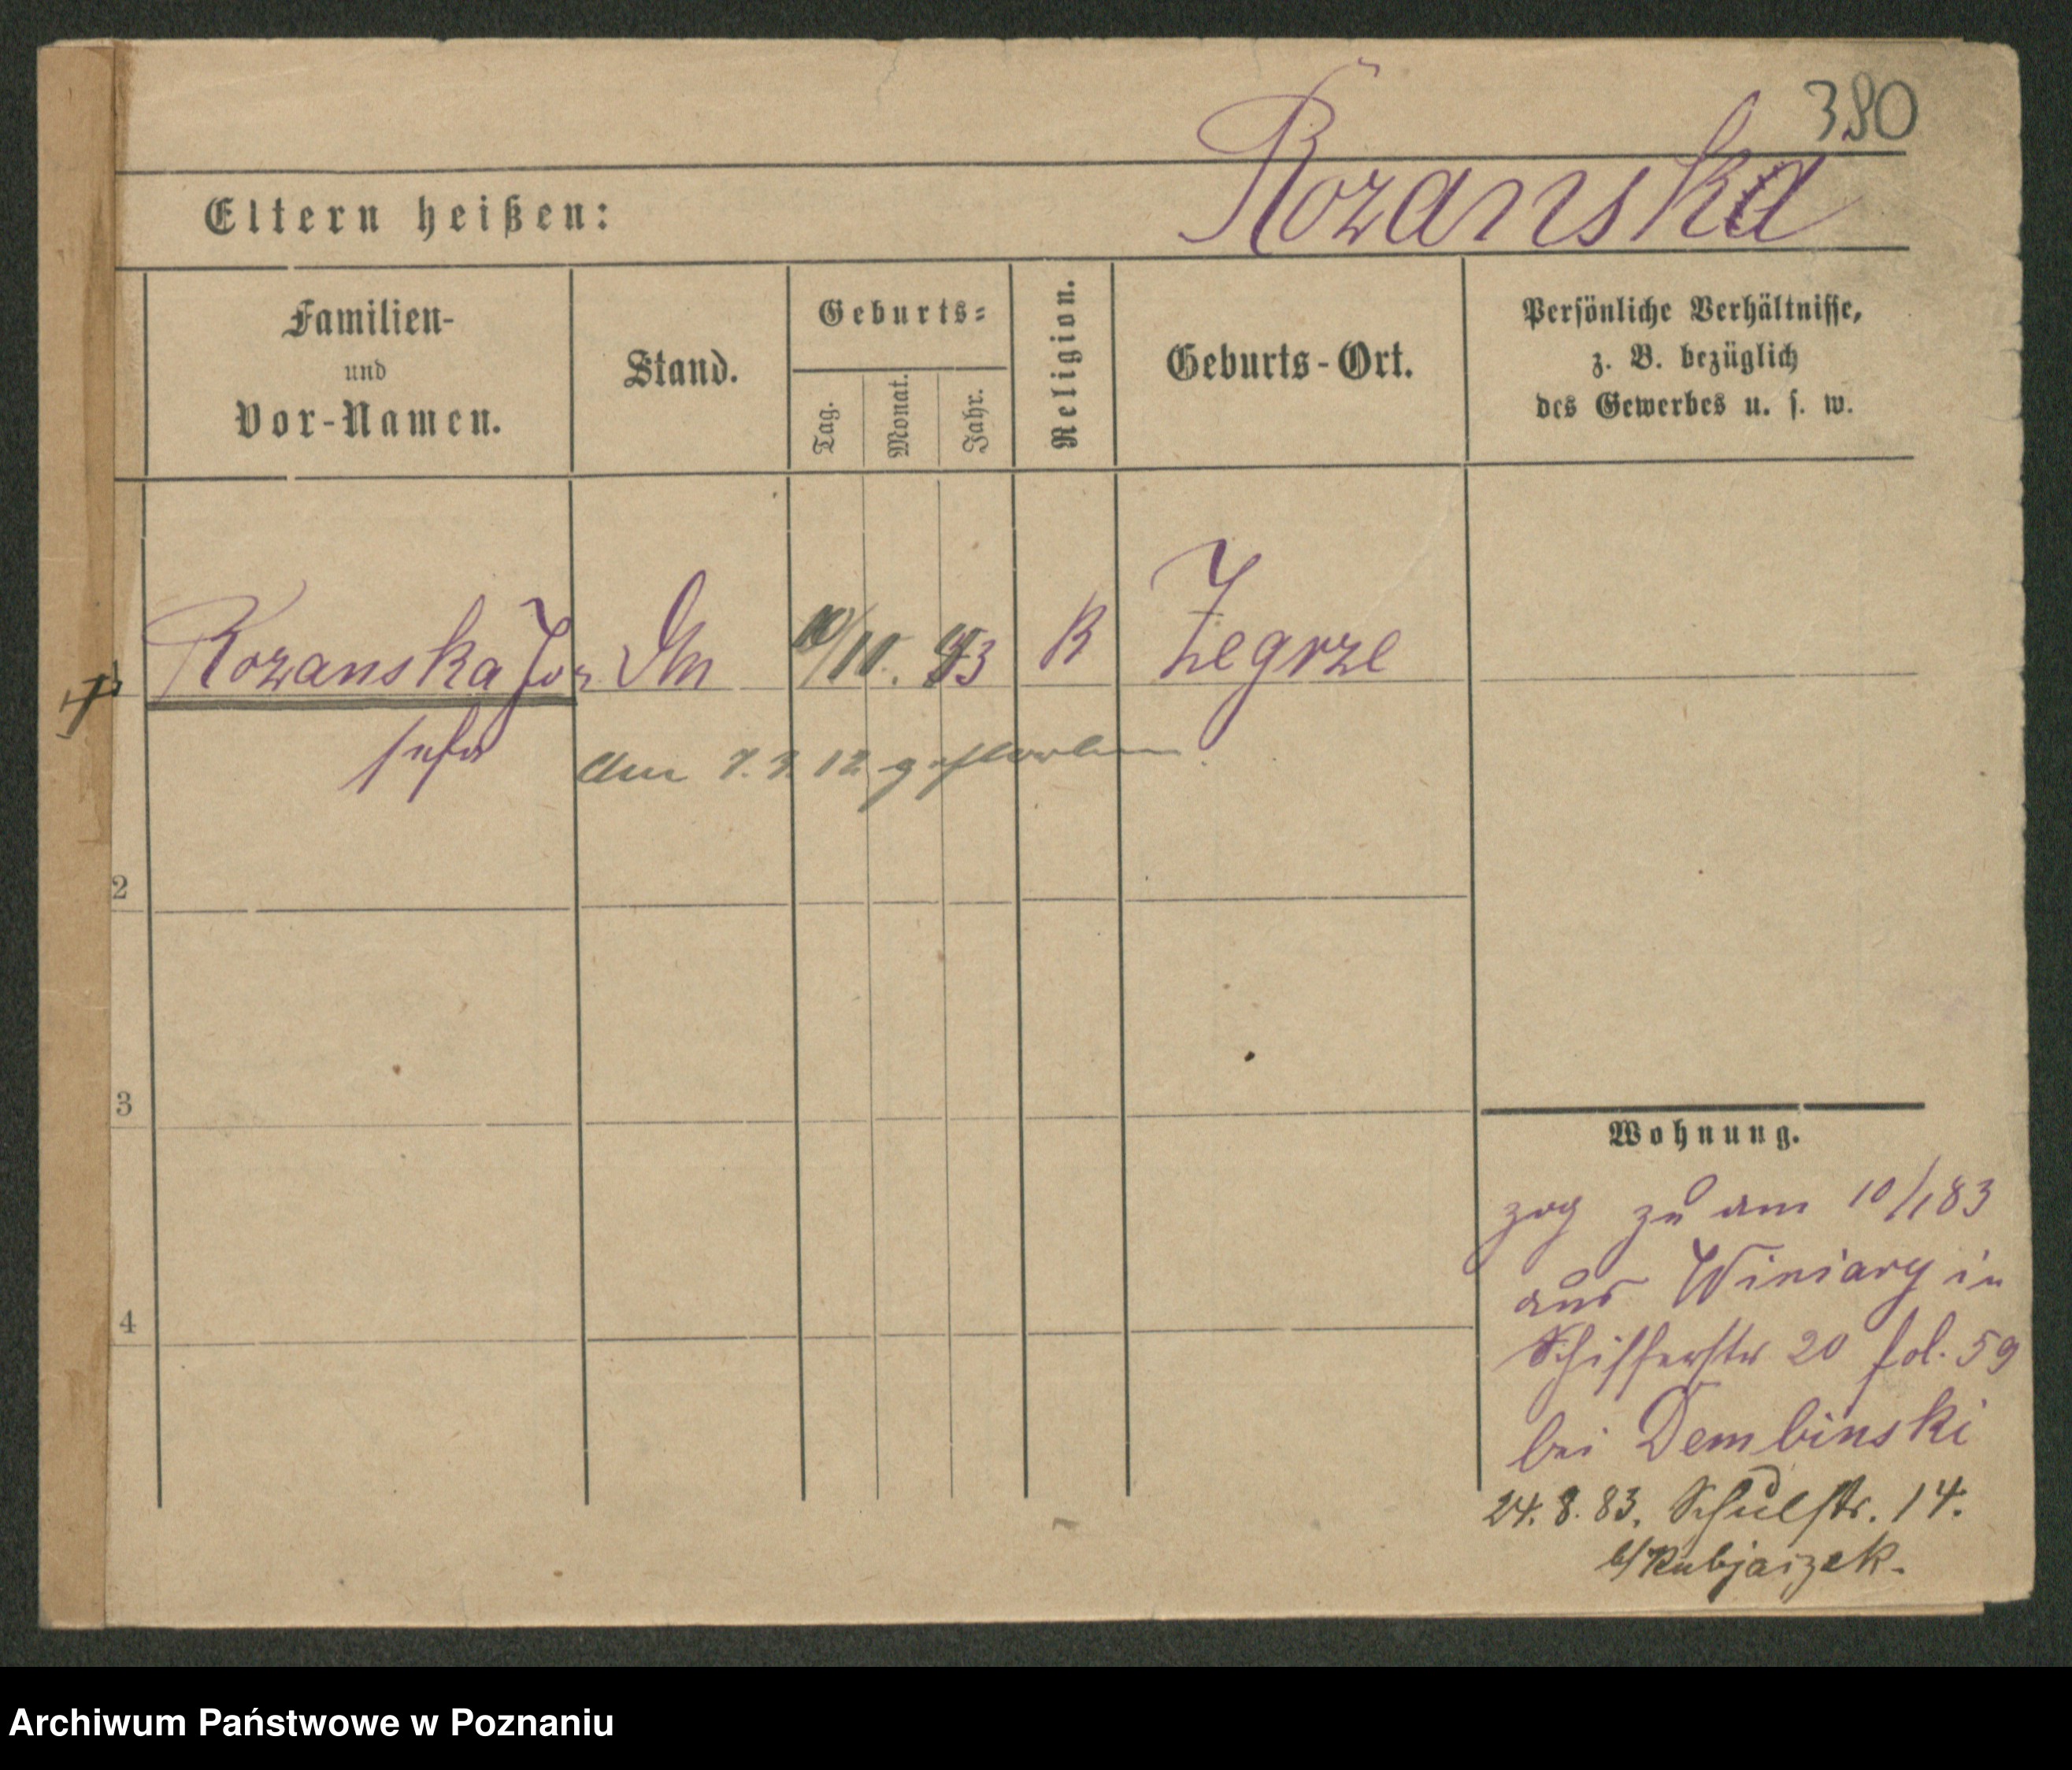 380
Rozanska
Eltern heißen:
Familien-
und
Vor-Namen.
Stand.
Geburts=
Tag.
Monat.
Jahr.
Religion.
Geburts-Ort.
Persönliche Verhältnisse,
z. B. bezüglich
des Gewerbes u. s. w.
Rozanska Jo=
sefa
10/11. 43
K
Zegrze
Am 7. 3. 12 gestorben.
2
3
4
Wohnung.
zog zu am 10/1 83
aus Winiary in
Schifferstr 20 fol. 59
bei Dembinski
24. 8. 83. Schulstr. 14.
b/ Kubjaczek.
Archiwum Państwowe w Poznaniu